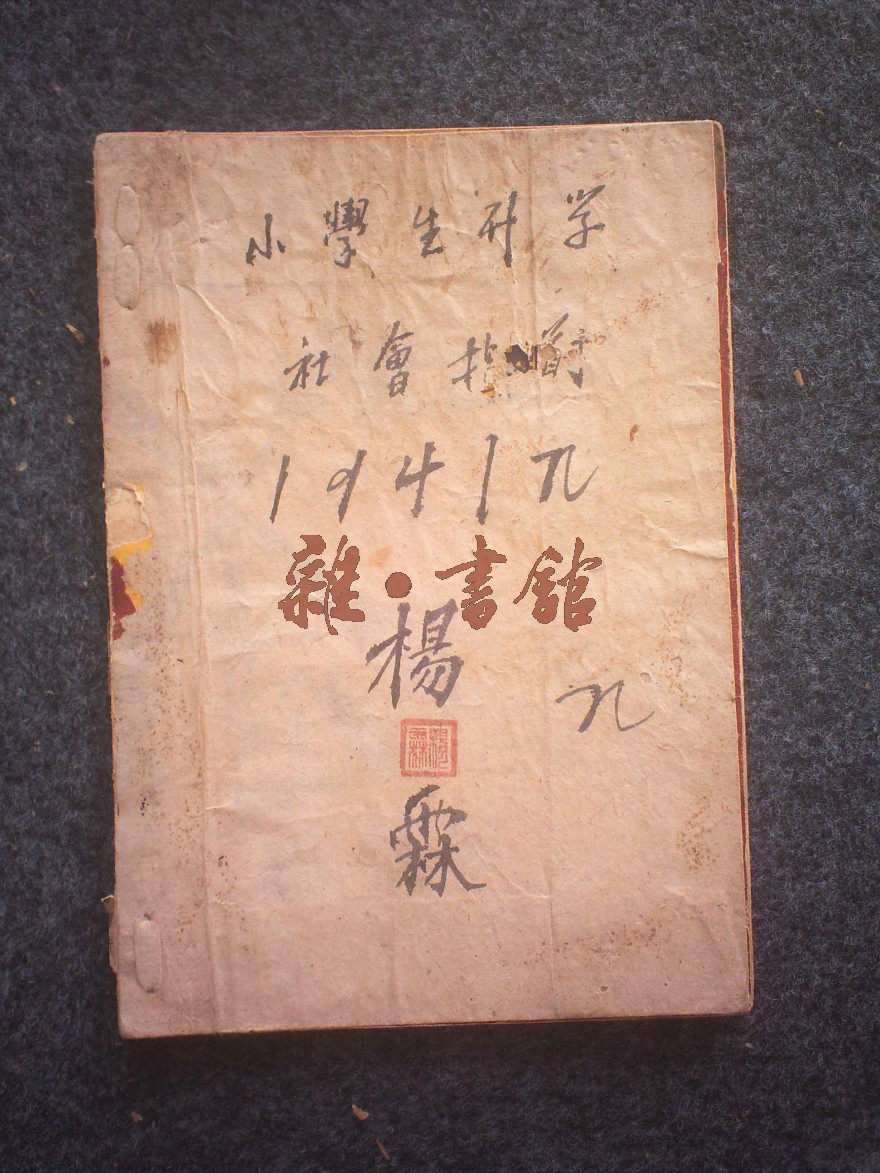 小學生升学
社會指
1941
雜·書館
楊
霖